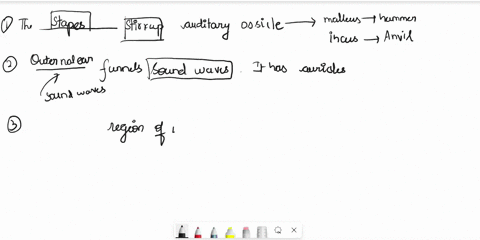 ① The Stapes Stirrup auditory ossicle → malleus → hammer
incus → Anvil
② Outernal ear funnels Sound waves. It has auricles
sound waves
③ region of